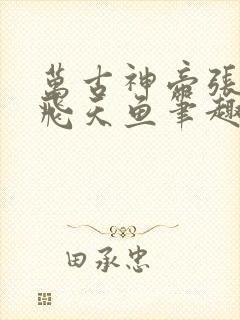 萬古神帝張
飛天魚筆趣
田承忠